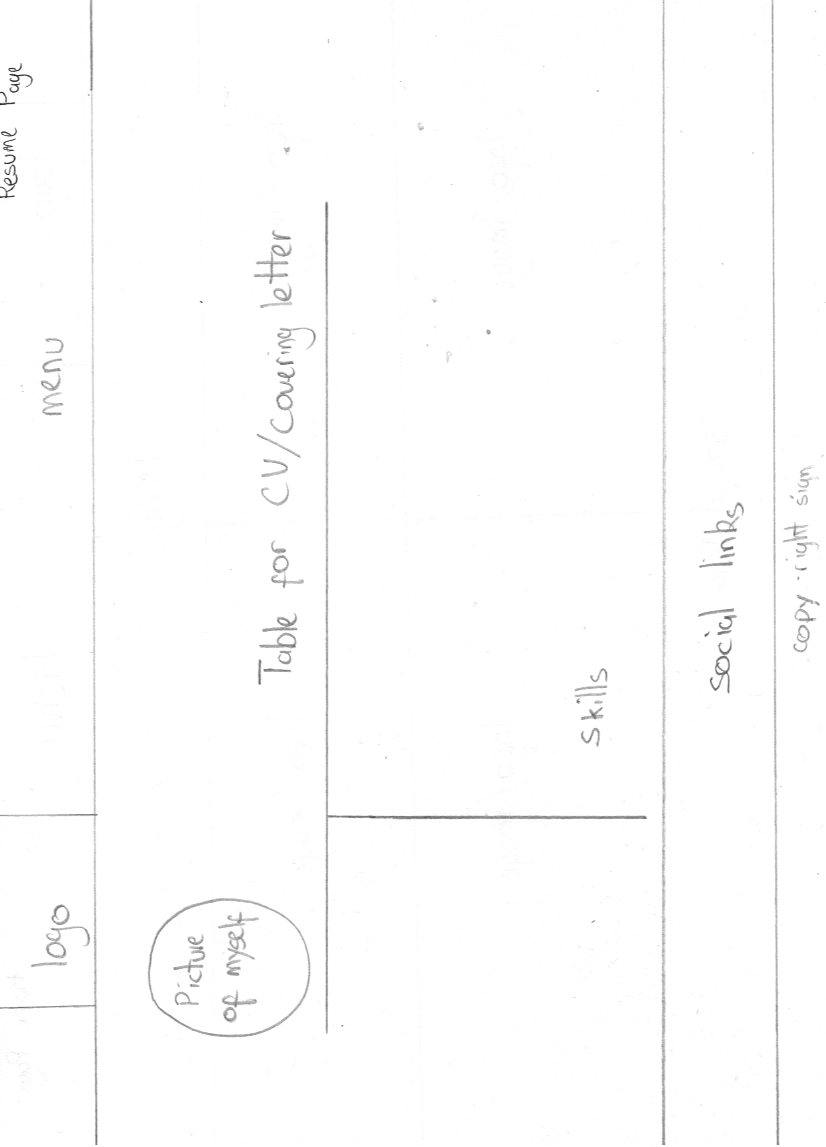 Resume Page
logo
menu
Picture
of myself
Table for CV/covering letter
skills
social links
copy-right sign